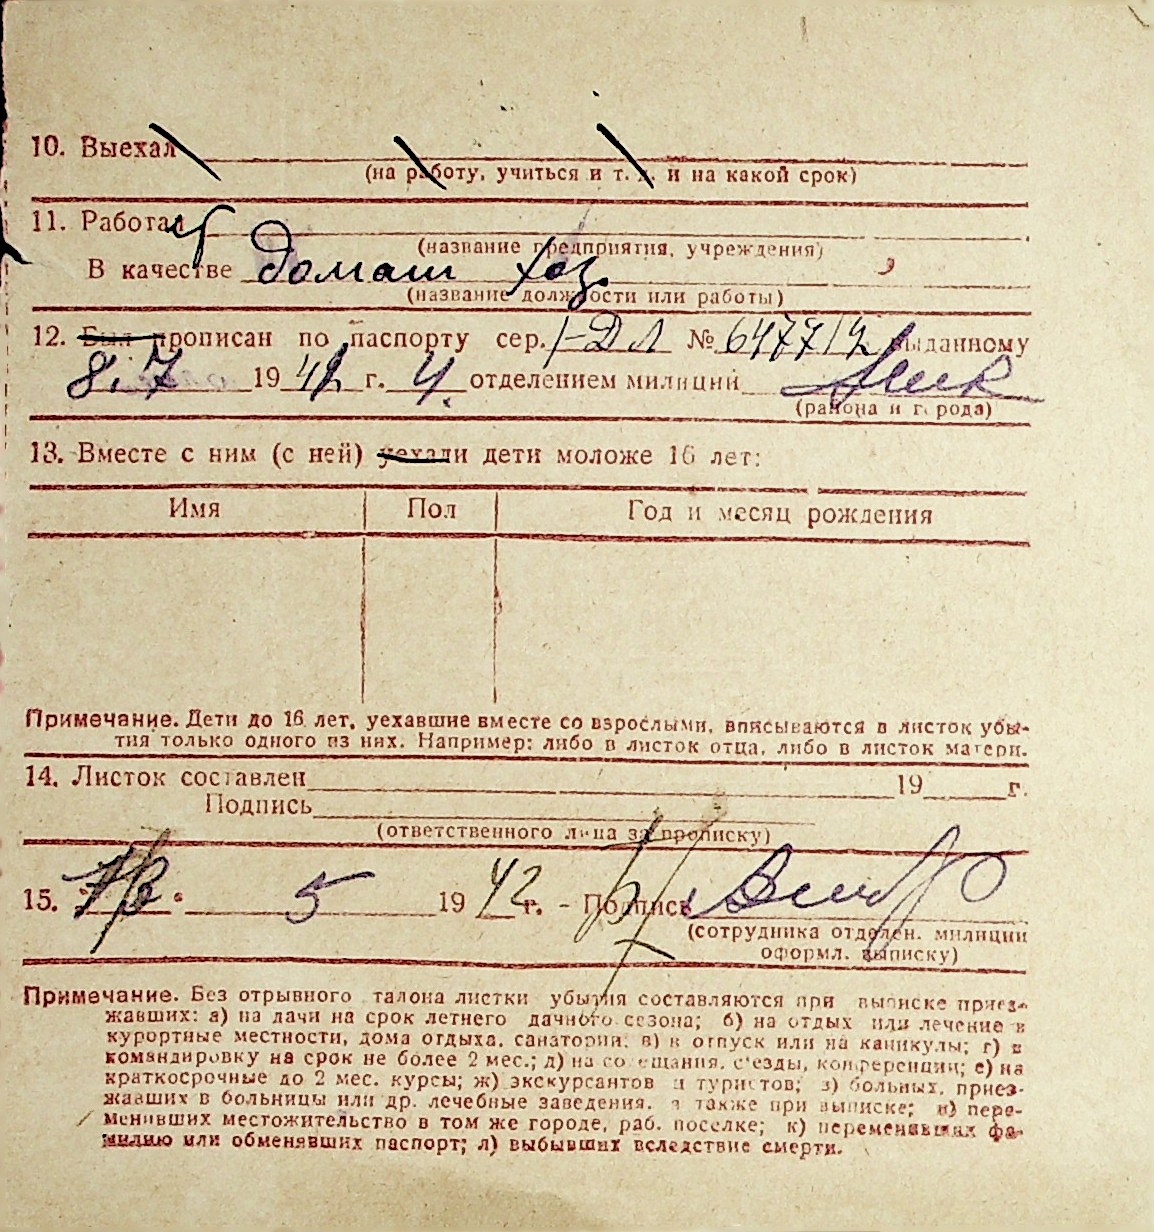 10. Выехал
(на работу, учиться и т. д. и на какой срок)
11. Работал
(название предприятия, учреждения)
В качестве домаш хоз.
(название должности или работы)
12. Был прописан по паспорту сер. I-ДЛ № 647712 выданному
8.7 1942 г. 4. отделением милиции
(района и города)
13. Вместе с ним (с ней) уехали дети моложе 16 лет:
Имя Пол Год и месяц рождения
Примечание. Дети до 16 лет, уехавшие вместе со взрослыми, вписываются в листок убы-
тия только одного из них. Например: либо в листок отца, либо в листок матери.
14. Листок составлен 19 г.
Подпись
(ответственного лица за прописку)
15. 5 1942 г. - Подпись
(сотрудника отделен. милиции
оформл. выписку)
Примечание. Без отрывного талона листки убытия составляются при выписке приез-
жавших: а) на дачи на срок летнего дачного сезона; б) на отдых или лечение в
курортные местности, дома отдыха, санатории; в) в отпуск или на каникулы; г) в
командировку на срок не более 2 мес.; д) на совещания, съезды, конференции; е) на
краткосрочные до 2 мес. курсы; ж) экскурсантов и туристов; з) больных, приез-
жавших в больницы или др. лечебные заведения, а также при выписке; и) пере-
менивших местожительство в том же городе, раб. поселке; к) переменивших фа-
милию или обменявших паспорт; л) выбывших вследствие смерти.